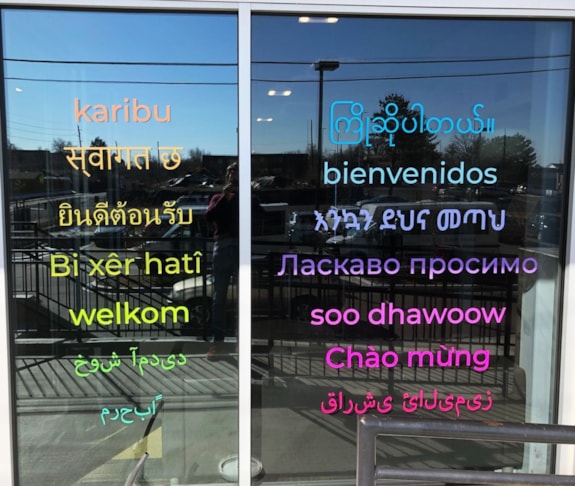 karibu
स्वागत छ
ยินดีต้อนรับ
Bi xêr hatî
welkom
دیدمآ شوخ
ًابحرم
ကြိုဆိုပါတယ်။
bienvenidos
እንኳን ደህና መጣህ
Ласкаво просимо
soo dhawoow
Chào mừng
زىمىلائ ىشراق